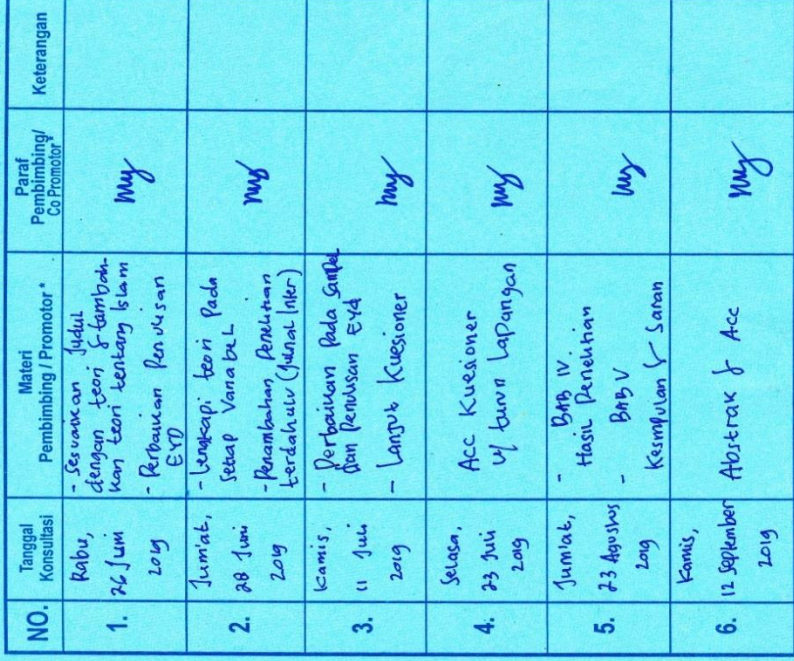 NO.
Tanggal
Konsultasi
Materi
Pembimbing / Promotor *
Paraf
Pembimbing/
Co Promotor*
Keterangan
1.
Rabu,
26 Juni
2019
- Sesuaikan Judul
dengan teori & tambah-
kan teori tentang Islam
- Perbaikan Penulisan
EYD
2.
Jum'at,
28 Juni
2019
- Lengkapi teori Pada
Setiap Variabel
- Penambahan Penelitian
terdahulu (Jurnal Inter)
3.
Kamis,
11 Juli
2019
- Perbaikan Pada Sampel
Dan Penulisan EYd
- Lanjut Kuesioner
4.
Selasa,
23 Juli
2019
Acc Kuesioner
u/ turun Lapangan
5.
Jum'at,
23 Agustus
2019
- BAB IV
Hasil Penelitian
- BAB V
Kesimpulan & Saran
6.
Kamis,
12 September
2019
Abstrak & Acc